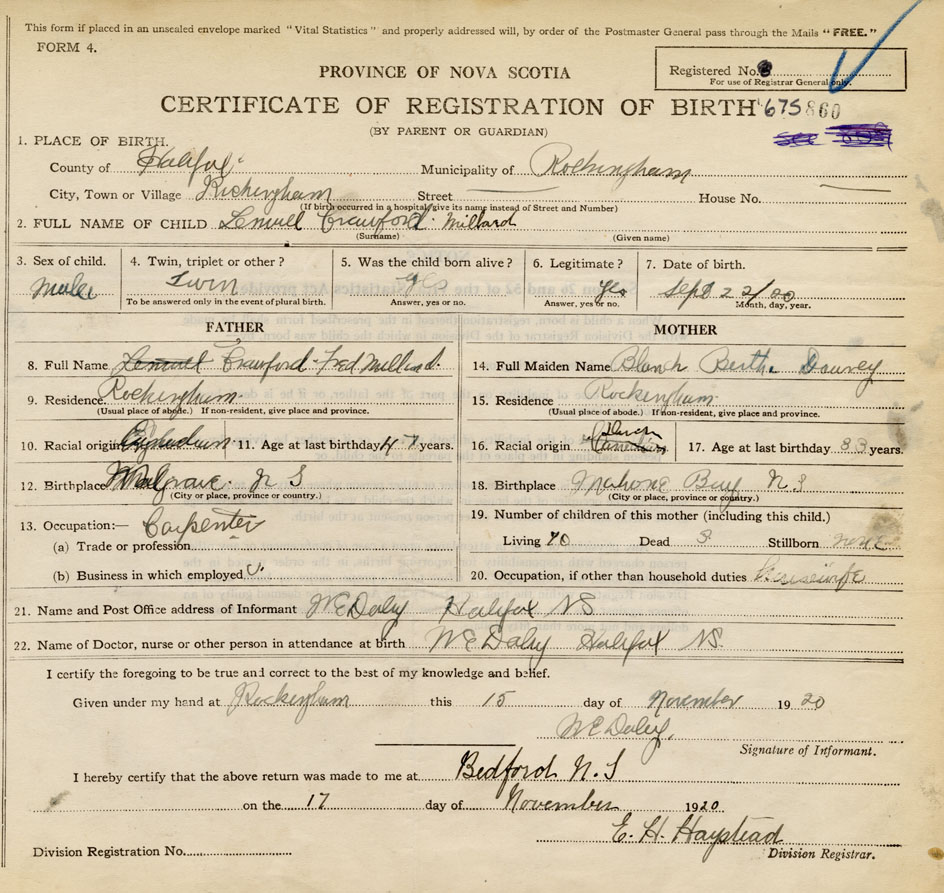 This form if placed in an unsealed envelope marked "Vital Statistics" and properly addressed will, by order of the Postmaster General pass through the Mails "FREE."
FORM 4.
Registered No.
For use of Registrar General only.
PROVINCE OF NOVA SCOTIA
CERTIFICATE OF REGISTRATION OF BIRTH 675860
(BY PARENT OR GUARDIAN)
1. PLACE OF BIRTH.
County of Halifax Municipality of Rockingham
City, Town or Village Rockingham Street House No.
(If birth occurred in a hospital, give its name instead of Street and Number)
2. FULL NAME OF CHILD Lemuel Crawford Millard
(Surname) (Given name)
3. Sex of child. 4. Twin, triplet or other? 5. Was the child born alive? 6. Legitimate? 7. Date of birth.
Male Twin Yes Yes Sept 22/20
To be answered only in the event of plural birth. Answer, yes or no. Answer, yes or no. Month, day, year.
FATHER MOTHER
8. Full Name Lemuel Crawford Fred Millard. 14. Full Maiden Name Blanch Bertha
9. Residence Rockingham 15. Residence Rockingham
(Usual place of abode.) If non-resident, give place and province. (Usual place of abode.) If non-resident, give place and province.
10. Racial origin 11. Age at last birthday 47 years. 16. Racial origin 17. Age at last birthday 33 years.
12. Birthplace Mulgrave N S 18. Birthplace Mahone Bay N S
(City or place, province or country.) (City or place, province or country.)
13. Occupation:— Carpenter 19. Number of children of this mother (including this child.)
(a) Trade or profession Living 10 Dead 3 Stillborn none
(b) Business in which employed 20. Occupation, if other than household duties Housewife
21. Name and Post Office address of Informant W E Daley Halifax NS
22. Name of Doctor, nurse or other person in attendance at birth W E Daley Halifax NS.
I certify the foregoing to be true and correct to the best of my knowledge and belief.
Given under my hand at Rockingham this 15 day of November 1920
W E Daley.
Signature of Informant.
I hereby certify that the above return was made to me at Bedford N.S
on the 17 day of November 1920
E. H. Haystead
Division Registration No. Division Registrar.